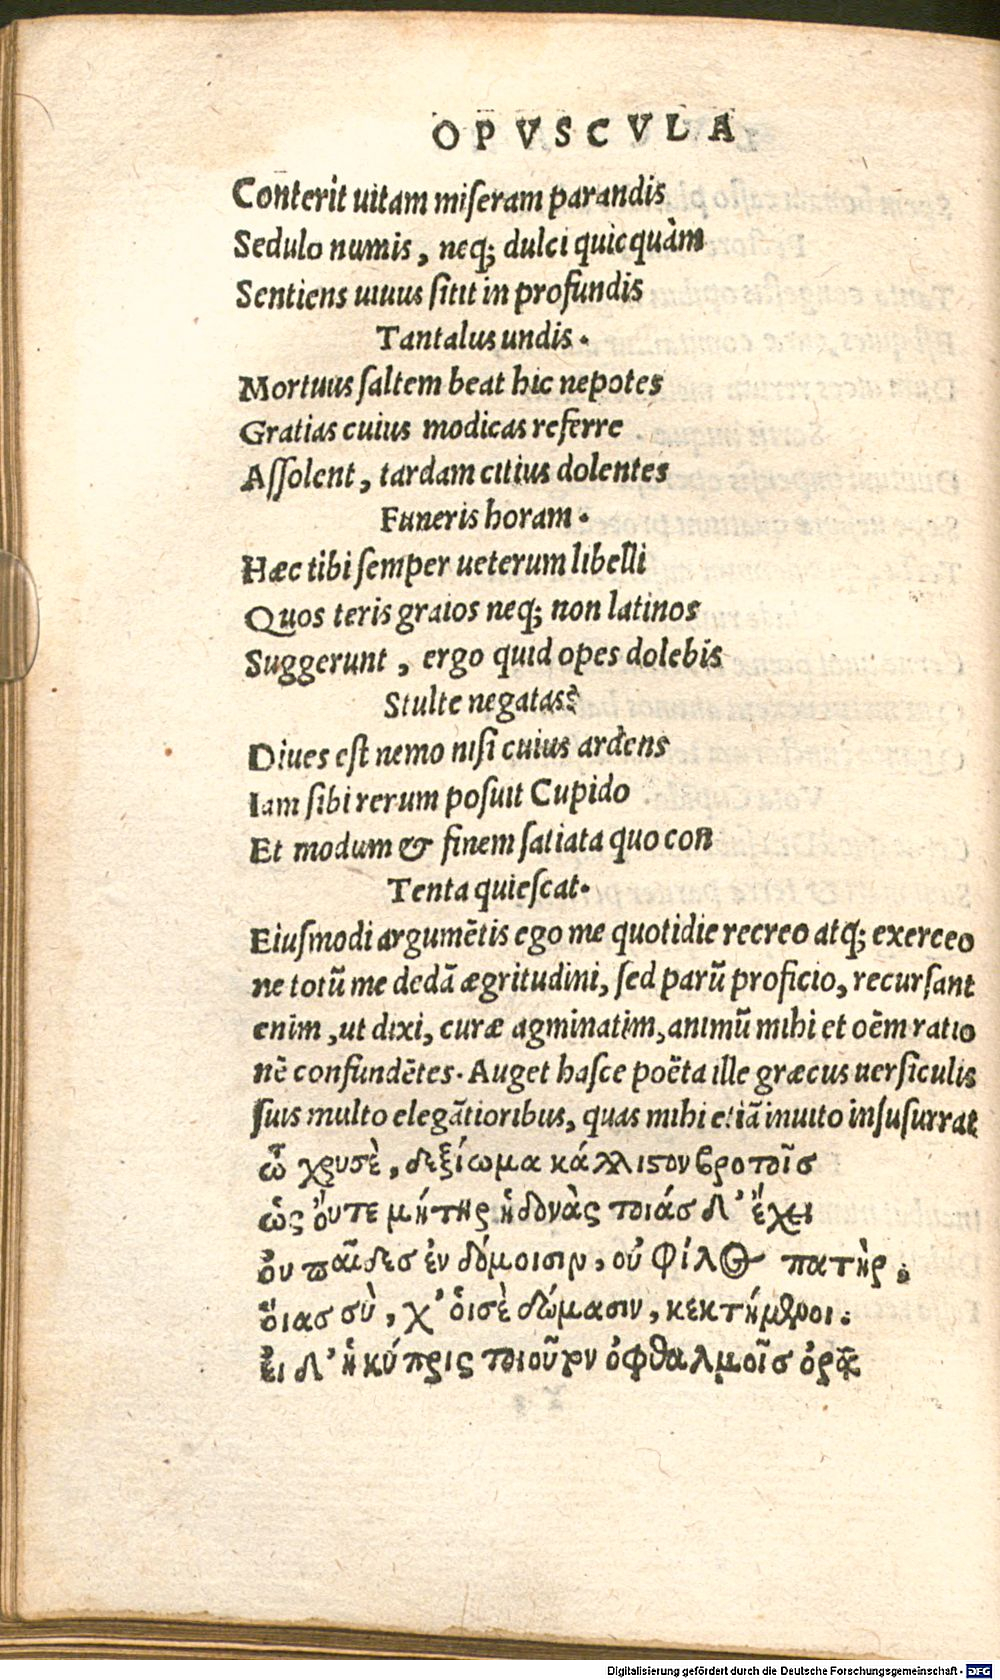 OPVSCVLA
Conterit uitam miseram parandis
Sedulo numis, neq; dulci quicquàm
Sentiens uiuus sitit in profundis
Tantalus undis.
Mortuus saltem beat hic nepotes
Gratias cuius modicas referre
Assolent, tardam citius dolentes
Funeris horam.
Hæc tibi semper ueterum libelli
Quos teris graios neq; non latinos
Suggerunt, ergo quid opes dolebis
Stulte negatas?
Diues est nemo nisi cuius ardens
Iam sibi rerum posuit Cupido
Et modum & finem satiata quo con
Tenta quiescat.
Eiusmodi argumẽtis ego me quotidie recreo atq; exerceo
ne totũ me dedã ægritudini, sed parũ proficio, recursant
enim, ut dixi, curæ agminatim, animũ mihi et oẽm ratio
nẽ confundẽtes. Auget hasce poëta ille græcus uersiculis
suis multo elegãtioribus, quas mihi etiã inuito insusurrat
ὦ χρυσὲ, δεξίωμα κάλλιϛον βροτοῖσ
ὡς ὄυτε μήτηρ ἡδονὰς τοιάσ δ' ἔχει
ὀυ παῖδεσ ἐν δόμοισιν, οὐ φίλος πατὴρ.
ὅιασ σὺ, χ' ὁισὲ δώμασιν, κεκτήμενοι.
ἐι δ' ἡ κύπρις τοιοῦτον ὀφθαλμοῖσ ὁρᾷ
Digitalisierung gefördert durch die Deutsche Forschungsgemeinschaft - DFG